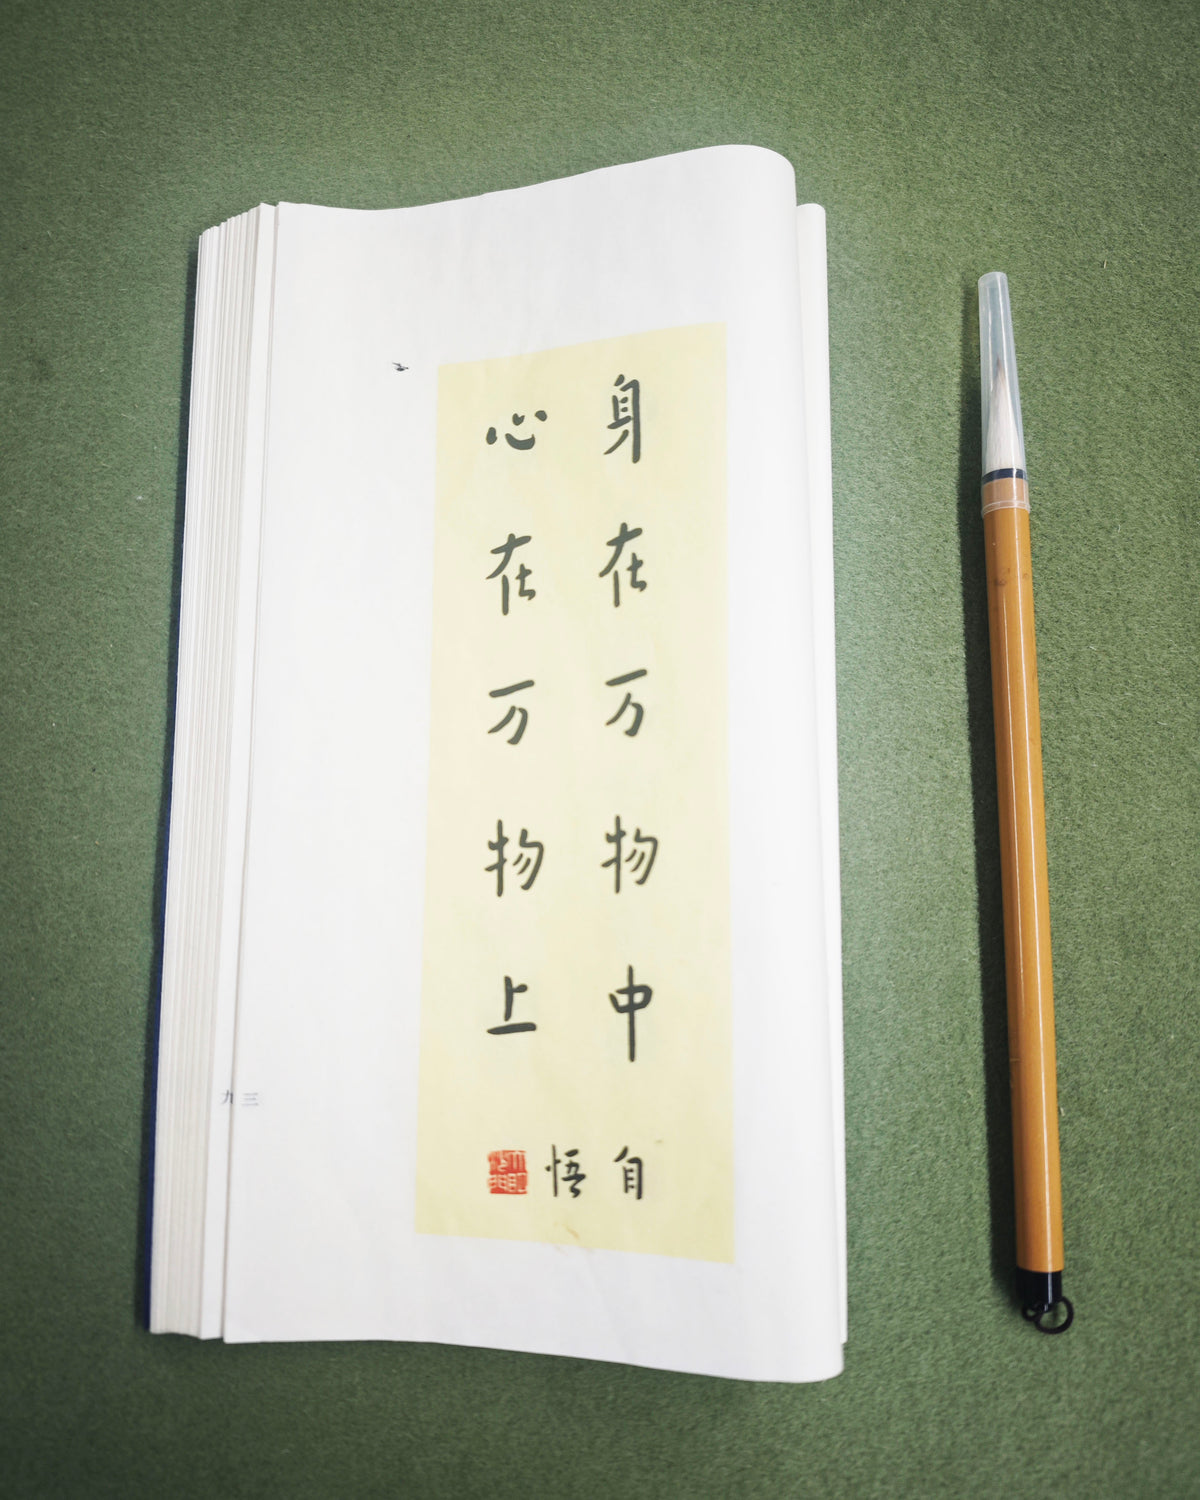 身在万物中
心在万物上
自悟
九三